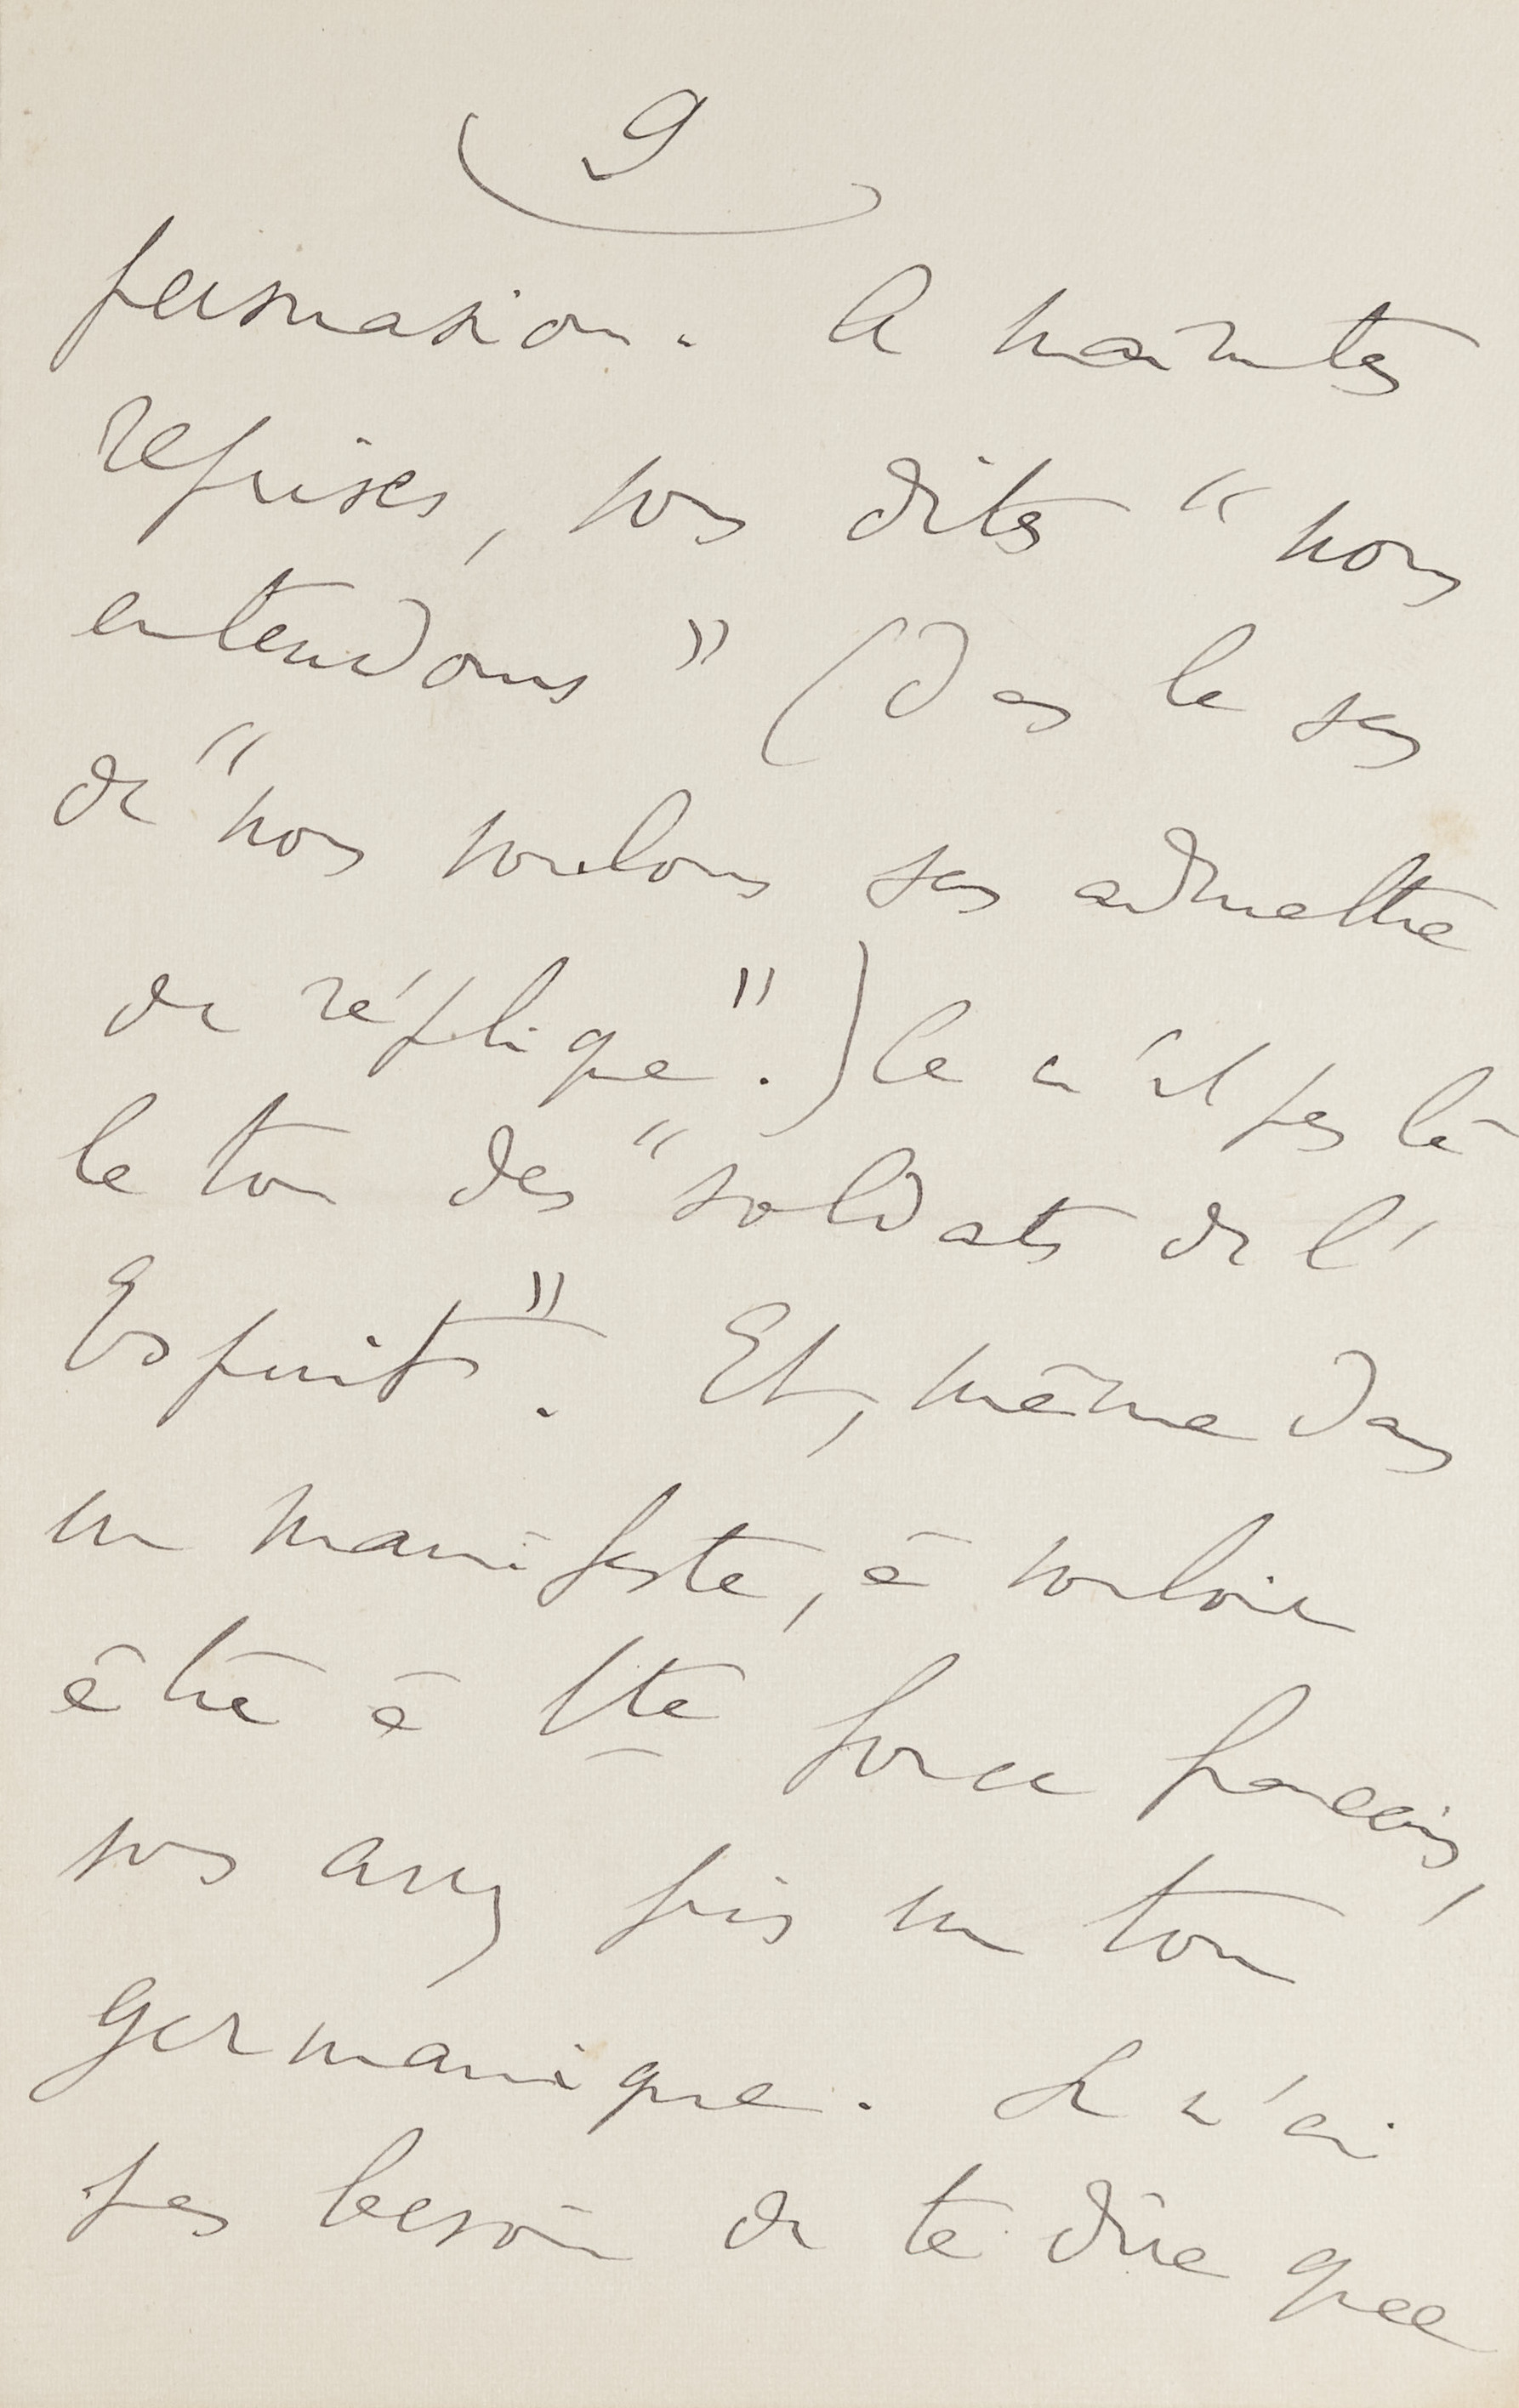 9
persuasion. A maintes
reprises, vous dites "nous
entendons" (dans le sens
de "nous voulons sans admettre
de réplique".) Ce n'est pas là
le ton des "soldats de l'
Esprit". Et, même dans
un manifeste, à vouloir
être à tte force français,
vous avez pris un ton
germanique. Je n'ai
pas besoin de te dire que